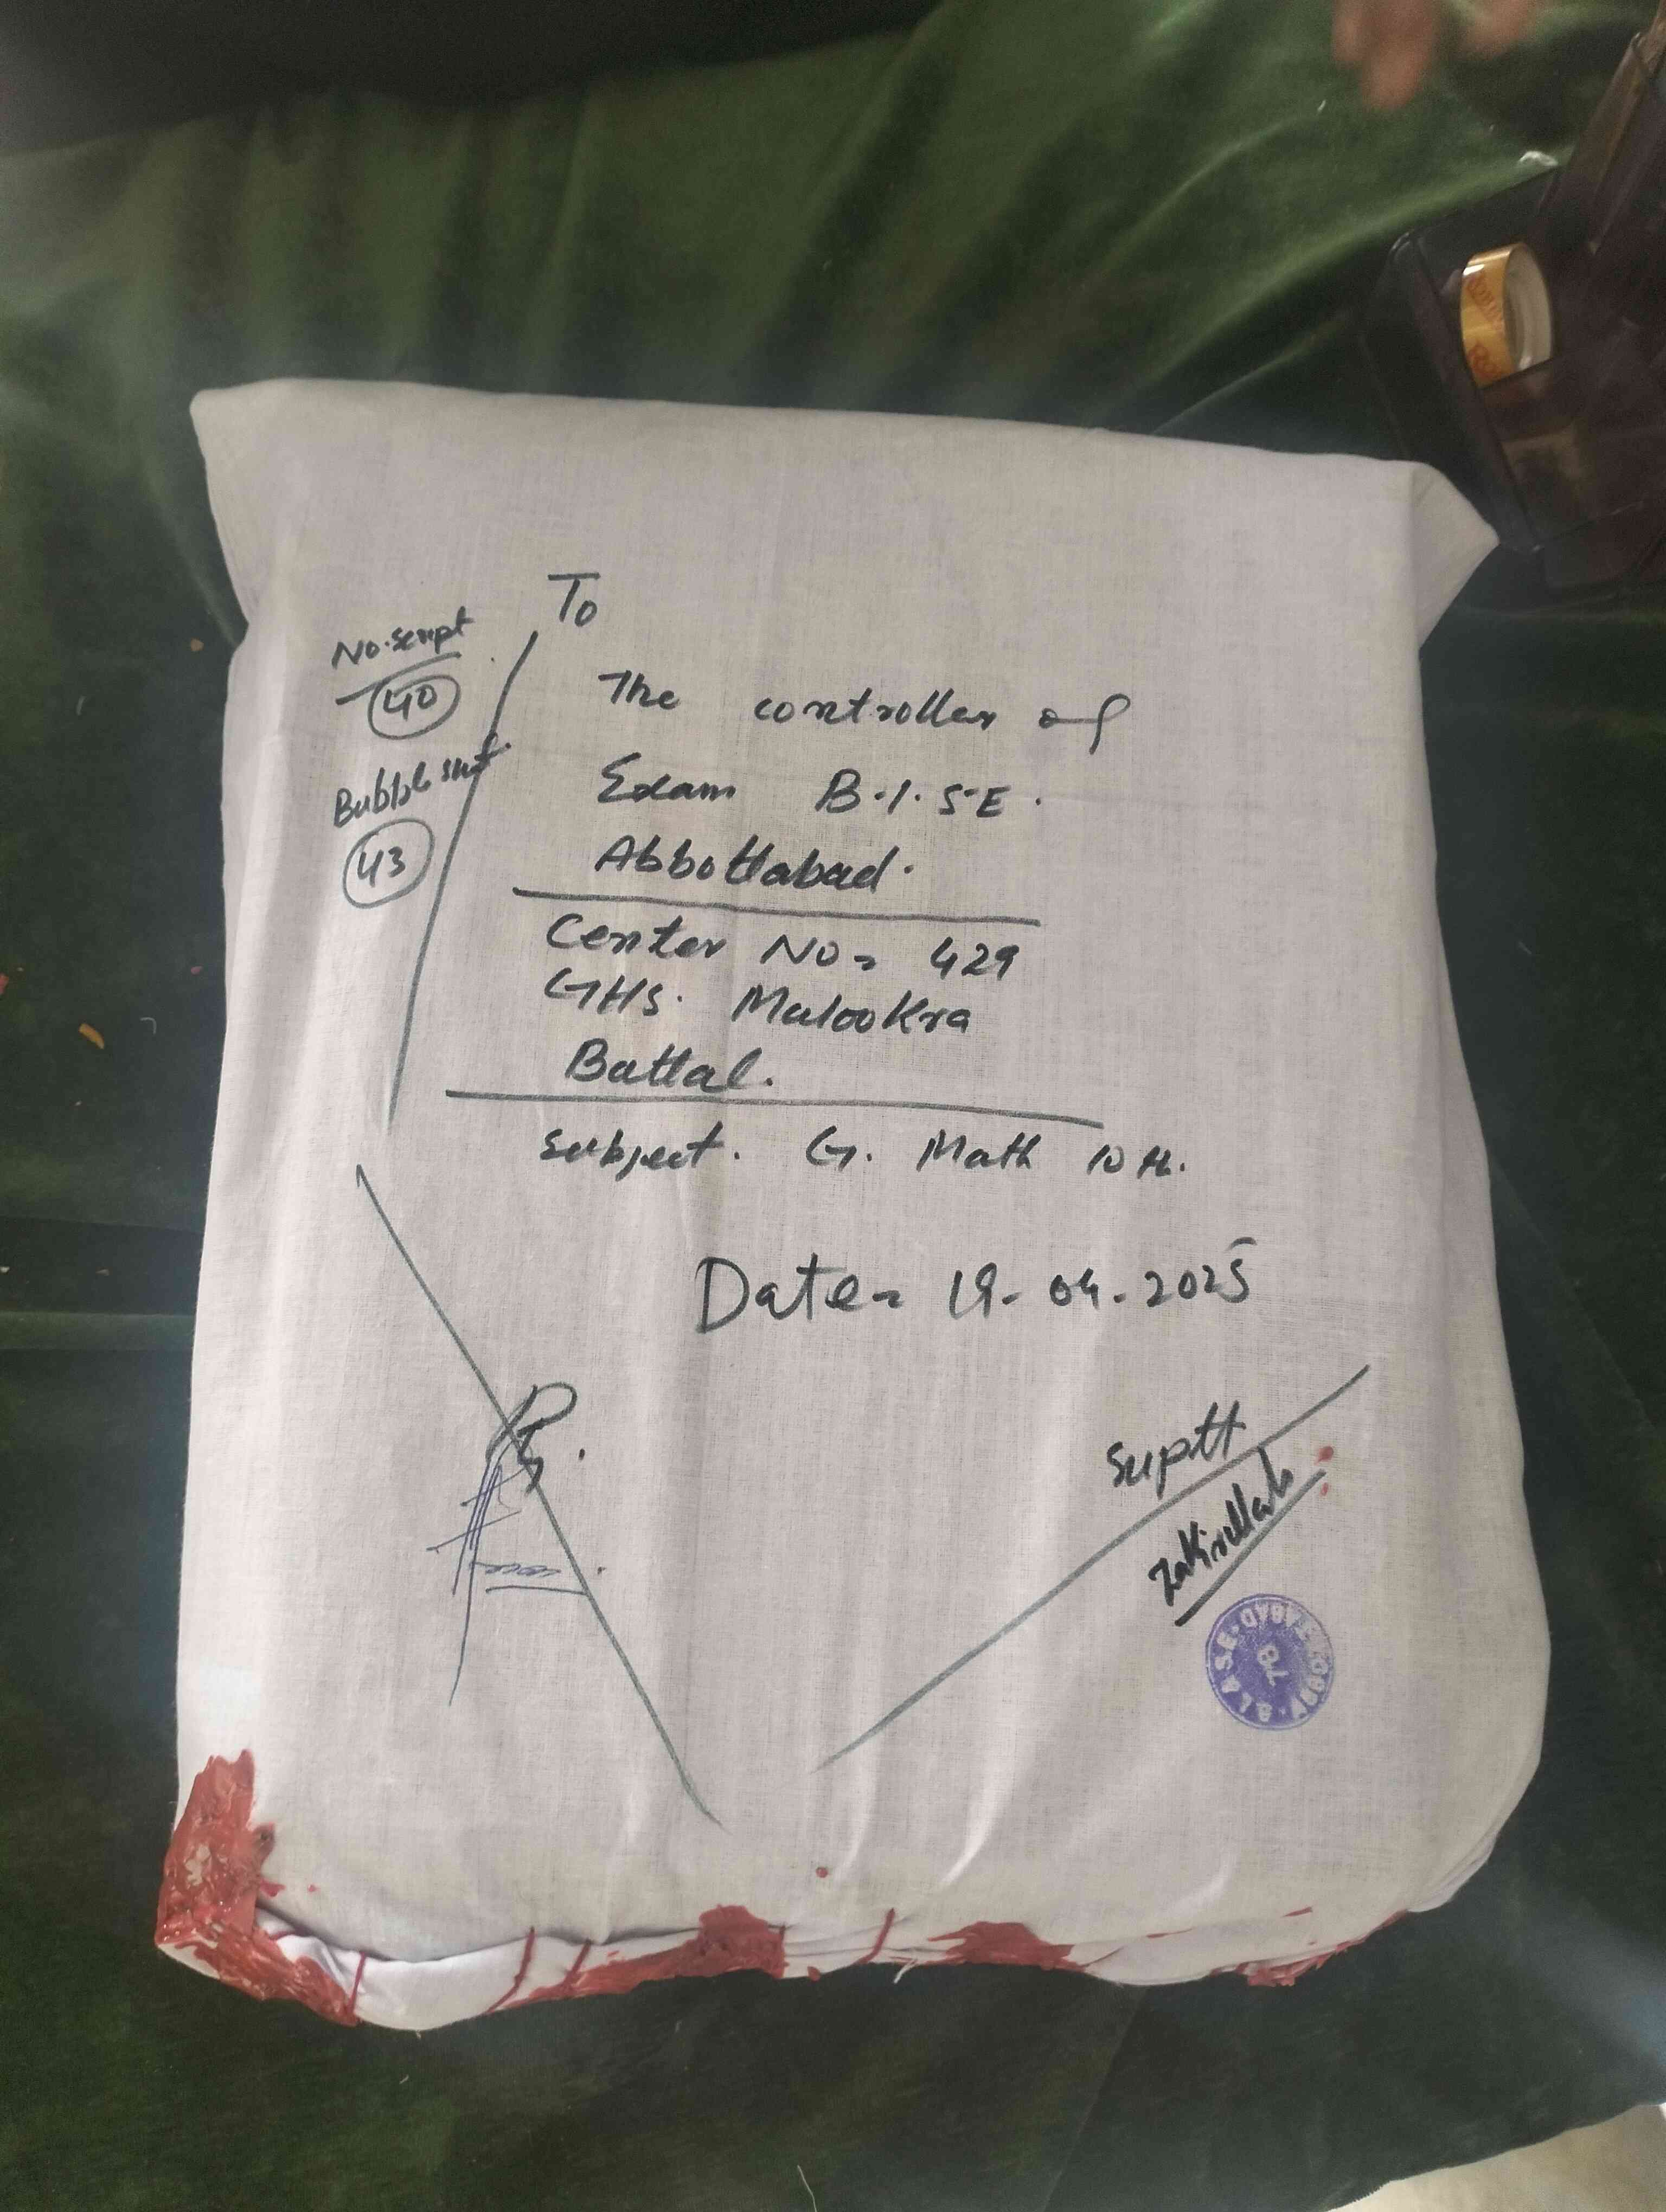 To
No. Script
40
Bubble Sht
43
The controller of
Exam B.I.S.E.
Abbottabad.
Center No= 429
GHS. Malookra
Battal.
Subject. G. Math 10th.
Date= 19-04-2025
Suptt
Zakirullah
B.I.&S.E. ABBOTTABAD
78